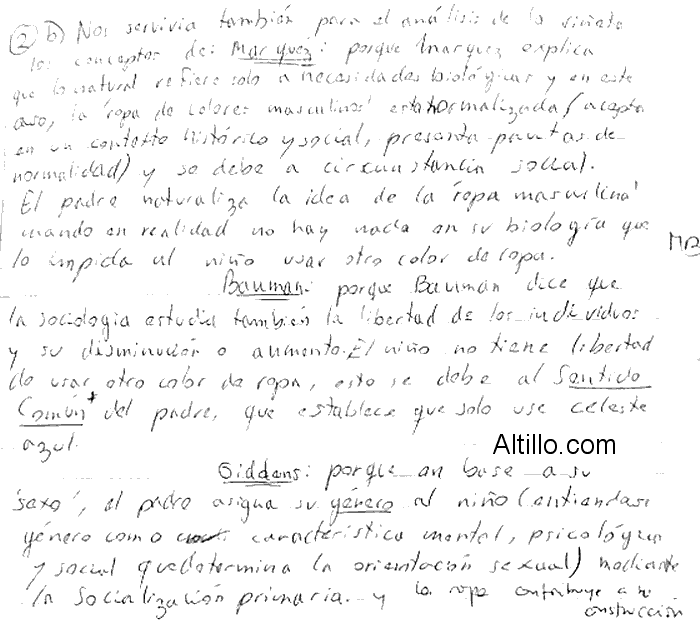 ② b) Nos serviria también para el análisis de la viñeta
los conceptos de: Marquez: porque Marquez explica
que lo natural refiere solo a necesidades biológicas y en este
caso, la 'ropa de colores masculinos' esta normalizada (acepta
en un contexto histórico y social, presenta pautas de
normalidad) y se debe a circunstancia social.
El padre naturaliza la idea de la 'ropa masculina'
cuando en realidad no hay nada en su biología que
le impida al niño usar otro color de ropa.
MB
Bauman: porque Bauman dice que
la sociología estudia también la libertad de los individuos
y su disminución o aumento. El niño no tiene libertad
de usar otro color de ropa, esto se debe al Sentido
Común del padre, que establece que solo use celeste
azul.
Altillo.com
Giddens: porque en base a su
'sexo', el padre asigna su género al niño (entiendase
género como característica mental, psicológica
y social que determina la orientación sexual) mediante
la Socialización primaria. y la ropa contribuye a su
construcción